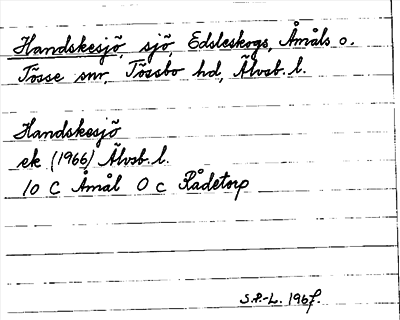 Handskesjö, sjö, Edsleskogs, Åmåls o.
Tösse snr, Tössbo hd, Älvsb. l.
Handskesjö
ek (1966) Älvsb. l.
10 C Åmål 0 c Rådetorp
S.P.-L. 1967.